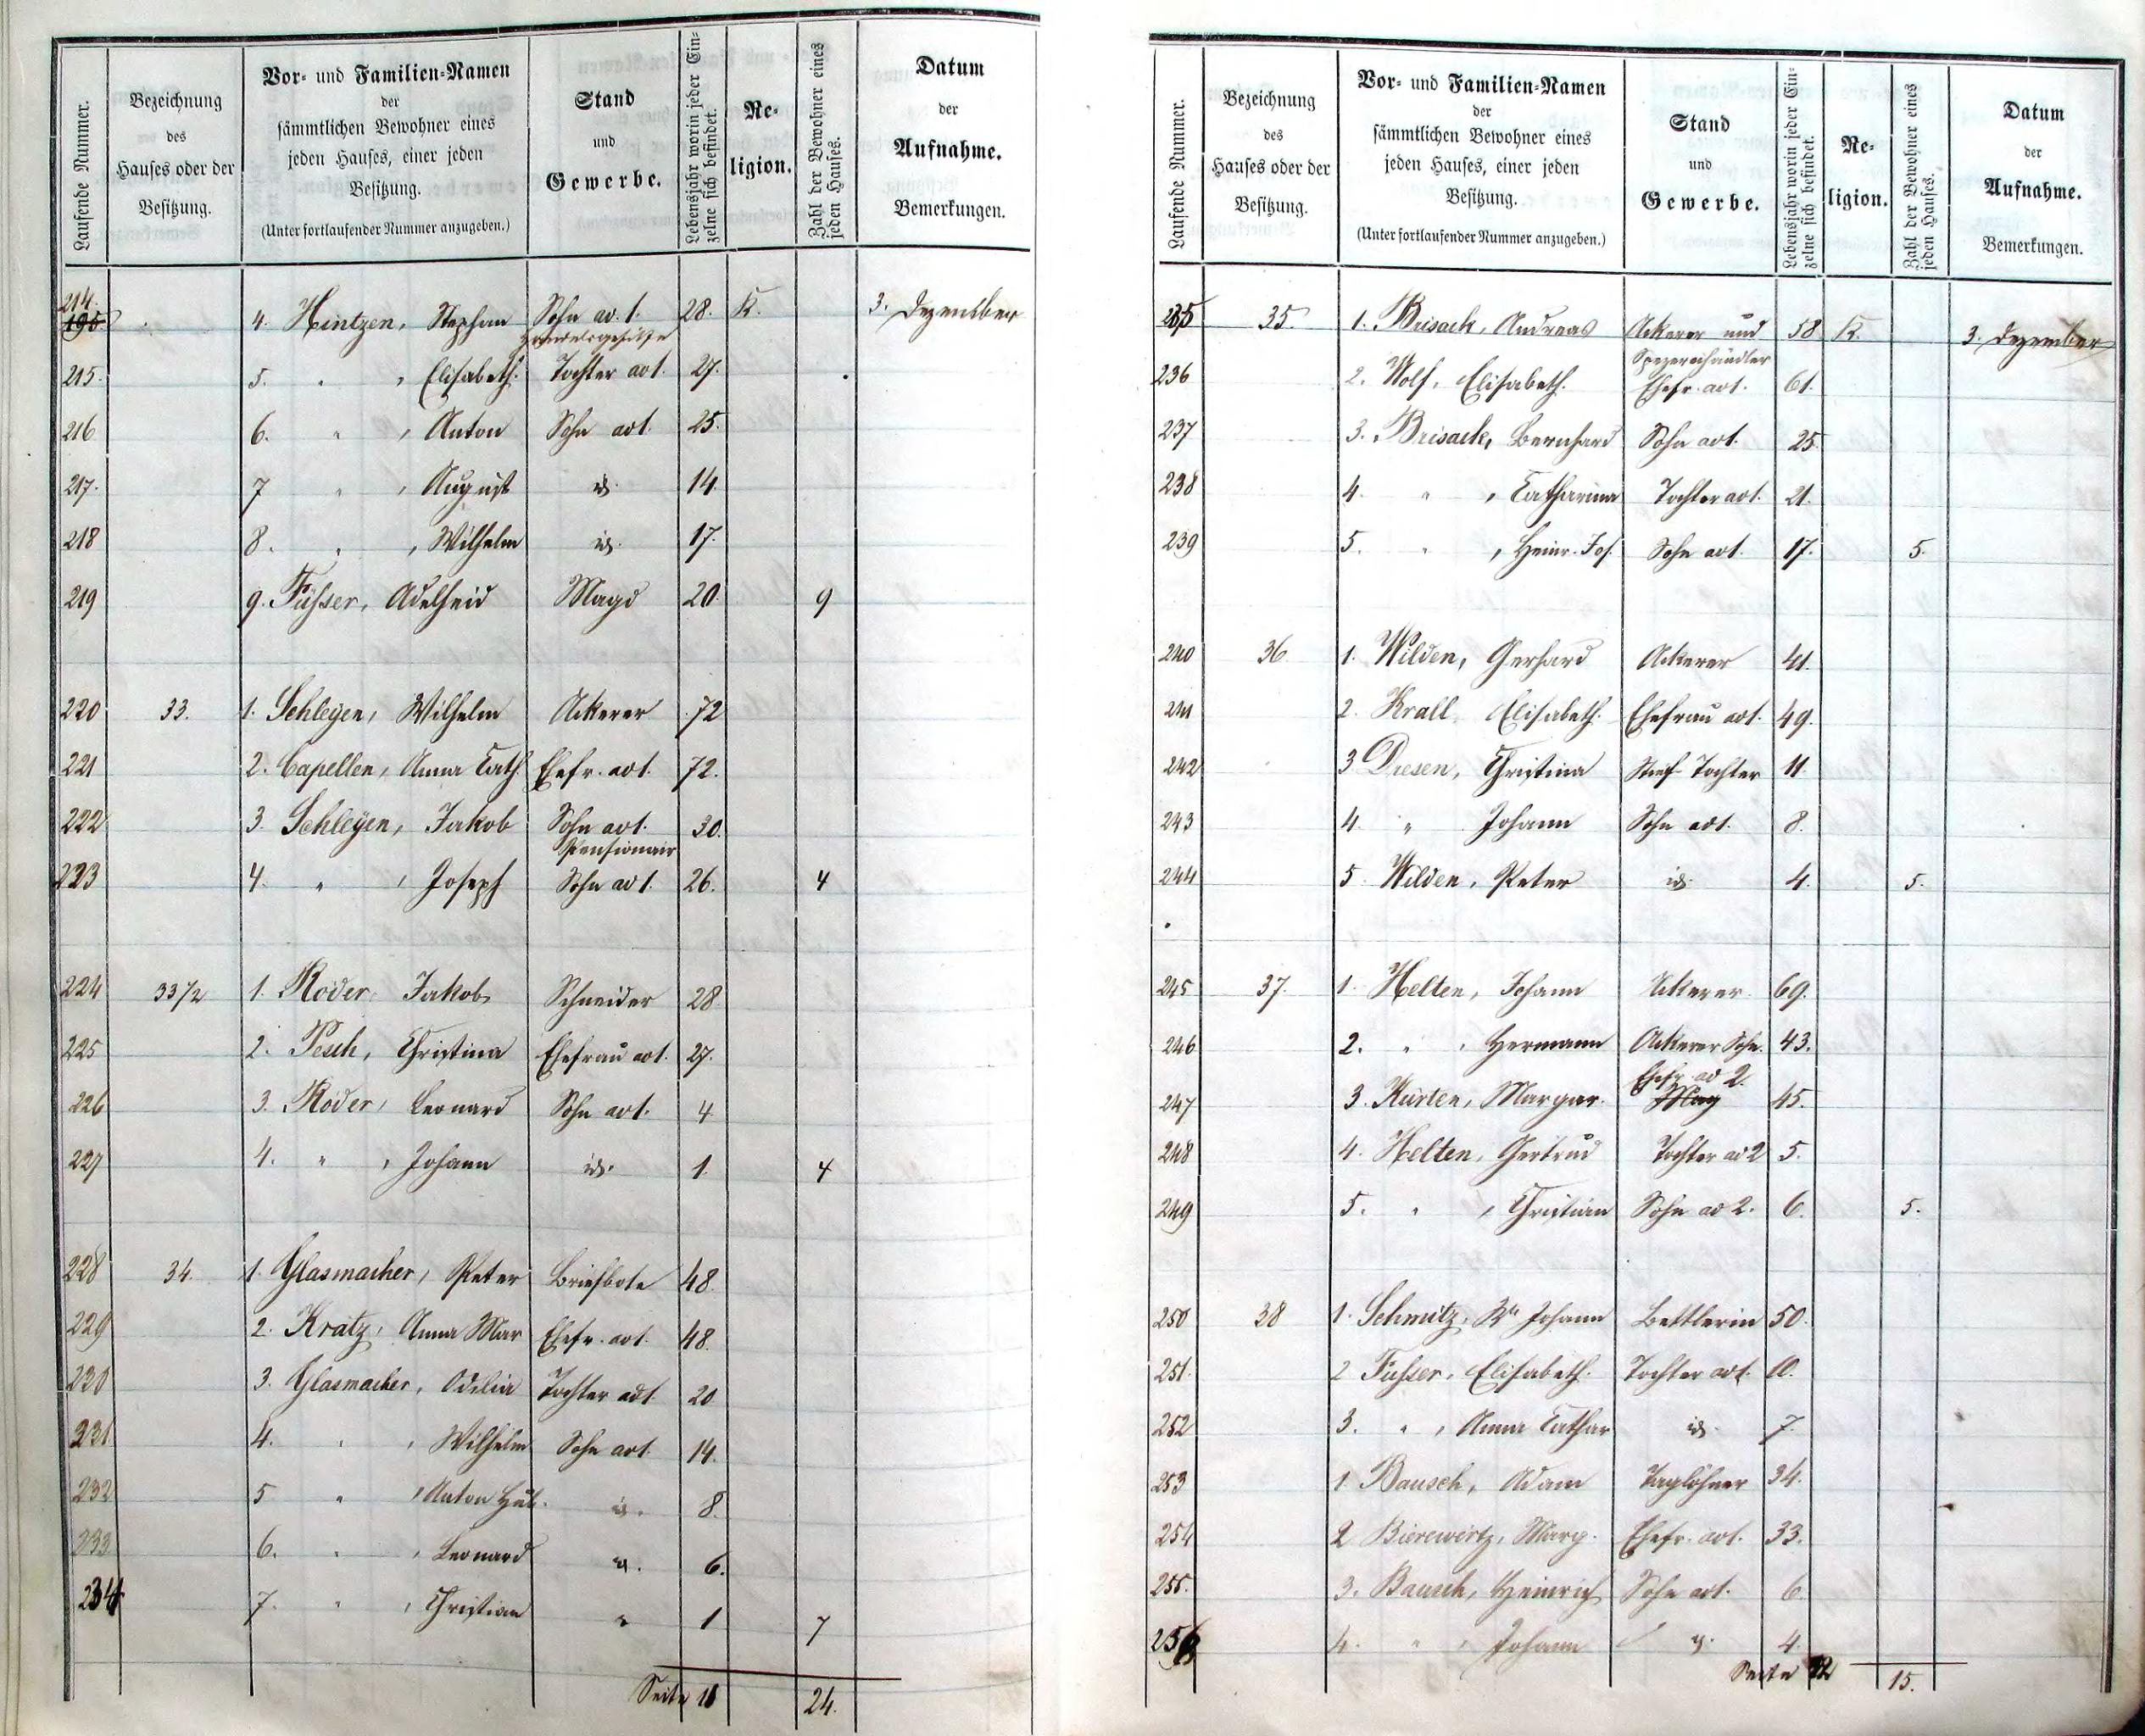 Laufende Nummer.
Bezeichnung
des
Hauses oder der
Besitzung.
Vor- und Familien-Namen
der
sämmtlichen Bewohner eines
jeden Hauses, einer jeden
Besitzung.
(Unter fortlaufender Nummer anzugeben.)
Stand
und
Gewerbe.
Lebensjahr worin jeder Ein-
zelne sich befindet.
Re-
ligion.
Zahl der Bewohner eines
jeden Hauses.
Datum
der
Aufnahme.
Bemerkungen.
214.
195 4. Hintzen, Stephan Sohn ad. 1. 28. K. 3. Dezember
215. 5. " , Elisabeth. Tochter ad 1. 27.
216 6. " , Anton Sohn ad 1. 25.
217. 7 " , August id. 14.
218 8. " , Wilhelm id. 17.
219 9. Füsser, Adelheid Magd 20. 9
220 33. 1. Schleyen, Wilhelm Ackerer 72
221 2. Capellen, Anna Cath. Ehefr. ad 1. 72.
222 3. Schleyen, Jakob Sohn ad 1. 30.
Pensionair
223 4. " , Joseph Sohn ad 1. 26. 4
224 33/2 1. Röder, Jakob Schneider 28
225 2. Pesch, Christina Ehefrau ad 1. 27.
226 3. Röder, Leonard Sohn ad 1. 4
227 4. " , Johann id. 1. 4
228 34. 1. Glasmacher, Peter Briefbote 48.
229 2. Kratz, Anna Mar Ehefr. ad 1. 48.
230 3. Glasmacher, Odilia Tochter ad 1. 20
231 4. " , Wilhelm Sohn ad 1. 14.
232 5 " , Anton Hub. id. 8.
233 6. " , Leonard id. 6.
234 7. " , Christian " 1 7
Seite 11 24.
Laufende Nummer.
Bezeichnung
des
Hauses oder der
Besitzung.
Vor- und Familien-Namen
der
sämmtlichen Bewohner eines
jeden Hauses, einer jeden
Besitzung.
(Unter fortlaufender Nummer anzugeben.)
Stand
und
Gewerbe.
Lebensjahr worin jeder Ein-
zelne sich befindet.
Re-
ligion.
Zahl der Bewohner eines
jeden Hauses.
Datum
der
Aufnahme.
Bemerkungen.
235 35. 1. Brisack, Andreas Ackerer und 58 K. 3. Dezember
Spezereihändler
236 2. Wolf, Elisabeth. Ehefr. ad 1. 61.
237 3. Brisack, Bernhard Sohn ad 1. 25.
238 4. " , Catharina Tochter ad 1. 21.
239 5. " , Heinr. Jos. Sohn ad 1. 17. 5.
240 36 1. Wilden, Gerhard Ackerer 41.
241 2. Krall, Elisabeth. Ehefrau ad 1. 49.
242 3 Diesen, Christina Stief-Tochter 11
243 4. " Johann Sohn ad 1. 8.
244 5 Wilden, Peter id. 4. 5.
245 37. 1. Helten, Johann Ackerer. 69.
246 2. " , Hermann Ackerer Sohn. 43.
Ehefr. ad 2.
247 3. Kürten, Margar. Mag 45.
248 4. Helten, Gertrud Tochter ad 2 5.
249 5. " , Christian Sohn ad 2. 6. 5.
250 38 1. Schmitz, Johann Bettlerin 50.
251. 2 Füsser, Elisabeth. Tochter ad 1.
252 3. " , Anna Cathar id. 7.
253 1. Bausch, Adam Taglöhner 34.
254 2 Bierewirtz, Marg. Ehefr. ad 1. 33.
255. 3. Bausch, Heinrich Sohn ad 1. 6.
256 4. " , Johann id. 4.
Seite 12 15.